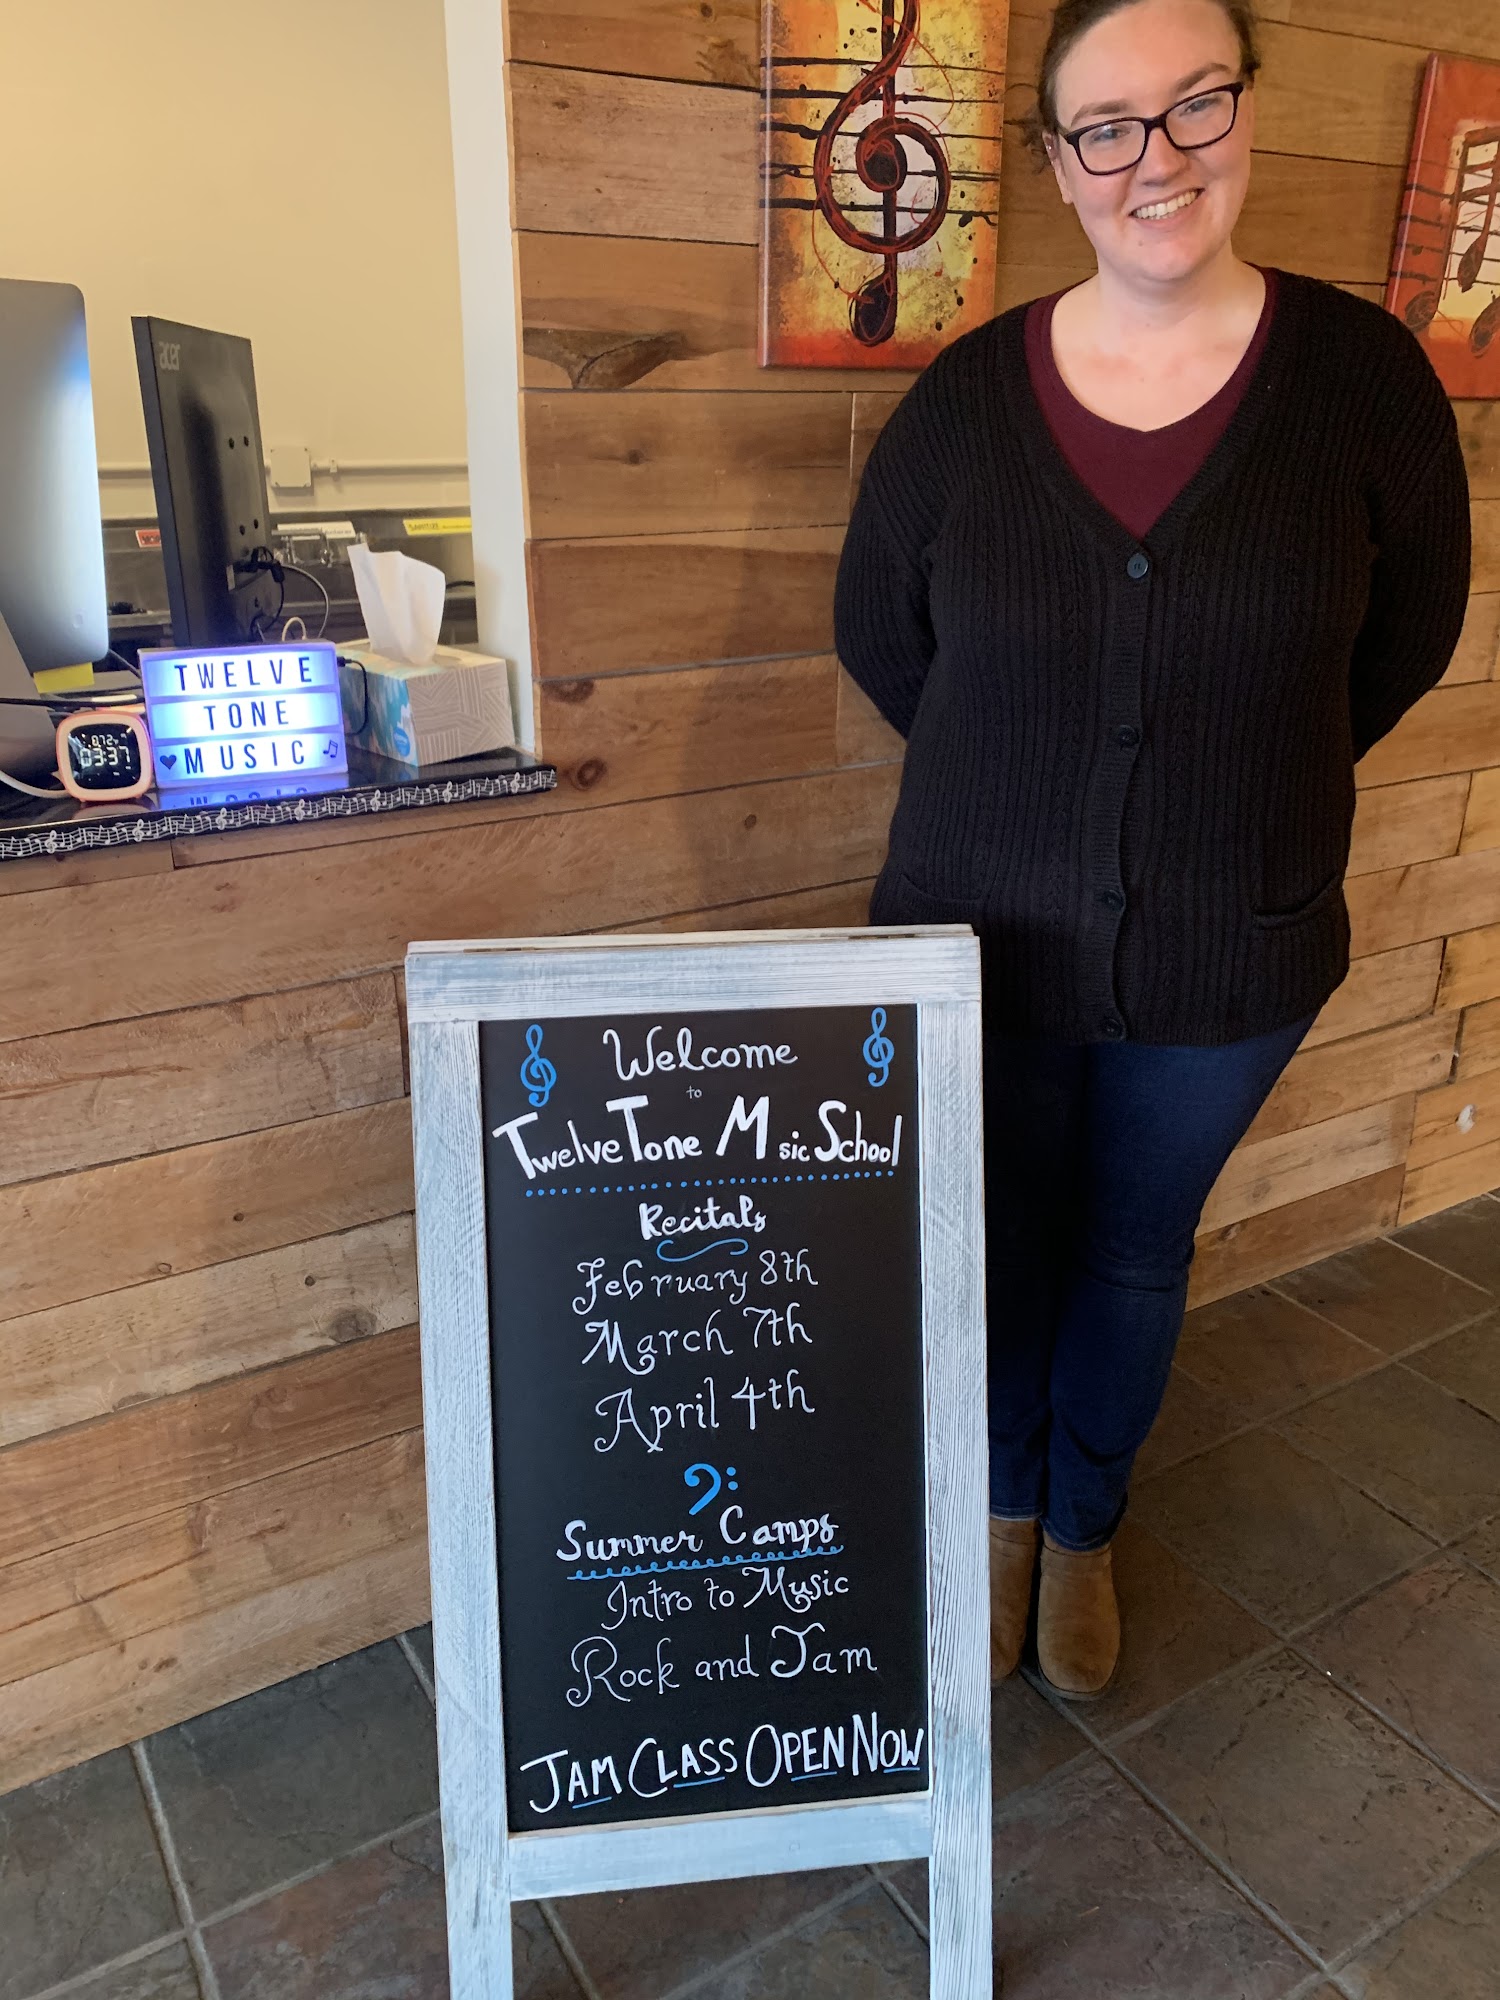 acer
TWELVE
TONE
MUSIC
03:37
Welcome
to
Twelve Tone M sic School
Recitals
February 8th
March 7th
April 4th
Summer Camps
Intro to Music
Rock and Jam
JAM CLASS OPEN NOW